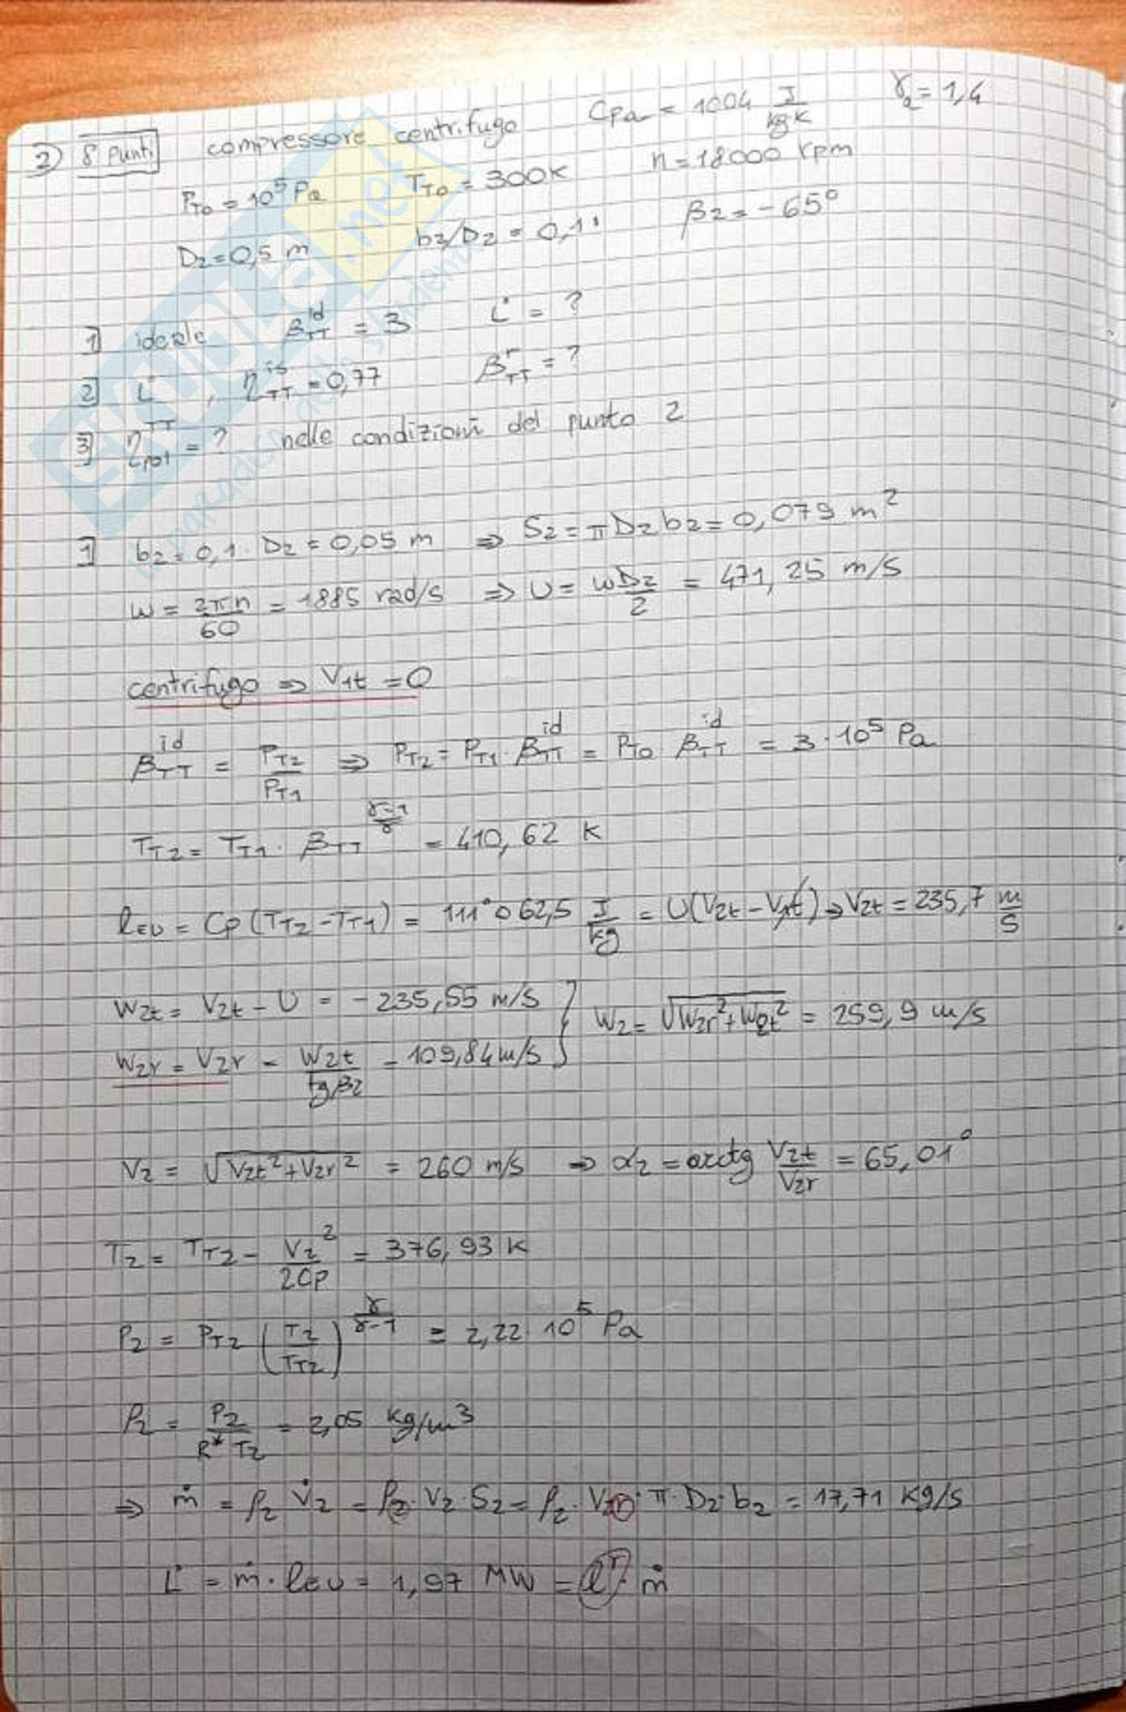 2) 8 punti compressore centrifugo Cpa = 1004 J/kgK γa = 1,4
PT0 = 10^5 Pa TT0 = 300K n = 18000 rpm
D2 = 0,5 m b2/D2 = 0,1 β2 = -65°
1] ideale βTT^id = 3 L̇ = ?
2] L̇ , ηTT^is = 0,77 βTT^r = ?
3] ηpol^TT = ? nelle condizioni del punto 2
1] b2 = 0,1 · D2 = 0,05 m ⇒ S2 = π D2 b2 = 0,079 m²
ω = 2πn/60 = 1885 rad/s ⇒ U = ωD2/2 = 471,25 m/s
centrifugo ⇒ V1t = 0
βTT^id = PT2/PT1 ⇒ PT2 = PT1 · βTT^id = PT0 βTT^id = 3 · 10^5 Pa
TT2 = TT1 · βTT^(γ-1/γ) = 410,62 K
lEU = Cp (TT2 - TT1) = 111°062,5 J/kg = U(V2t - V1t) ⇒ V2t = 235,7 m/s
W2t = V2t - U = -235,55 m/s } W2 = √(W2r² + W2t²) = 259,9 m/s
W2r = V2r = W2t/tgβ2 = 109,84 m/s
V2 = √(V2t² + V2r²) = 260 m/s ⇒ α2 = arctg V2t/V2r = 65,01°
T2 = TT2 - V2²/2Cp = 376,93 K
P2 = PT2 (T2/TT2)^(γ/γ-1) = 2,22 · 10^5 Pa
ρ2 = P2/R* T2 = 2,05 kg/m³
⇒ ṁ = ρ2 V̇2 = ρ2 · V2 · S2 = ρ2 · V2r · π · D2 · b2 = 17,71 kg/s
L̇ = ṁ · lEU = 1,97 MW = l^r · ṁ